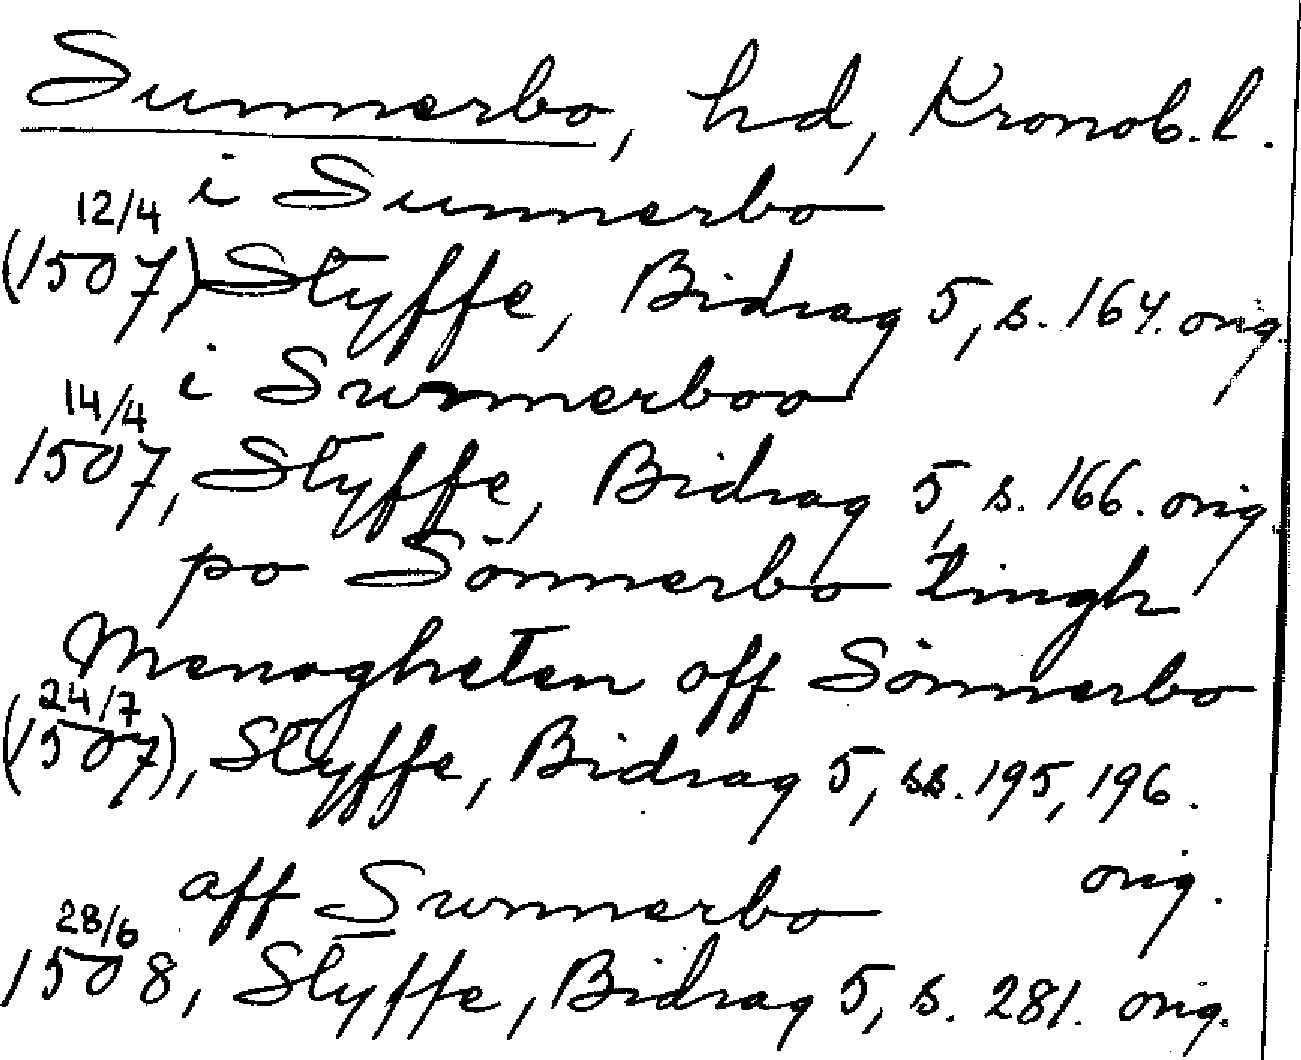 Sunnerbo, hd, Kronob. l.
i Sunnerbo
12/4
(1507), Styffe, Bidrag 5, s. 164. orig.
i Sunnerboo
14/4
1507, Styffe, Bidrag 5, s. 166. orig.
po Sönnerbo tingh
Menogheten off Sönnerbo
24/7
(1507), Styffe, Bidrag 5, ss. 195, 196.
orig.
aff Sunnerbo
28/6
1508, Styffe, Bidrag 5, s. 281. orig.